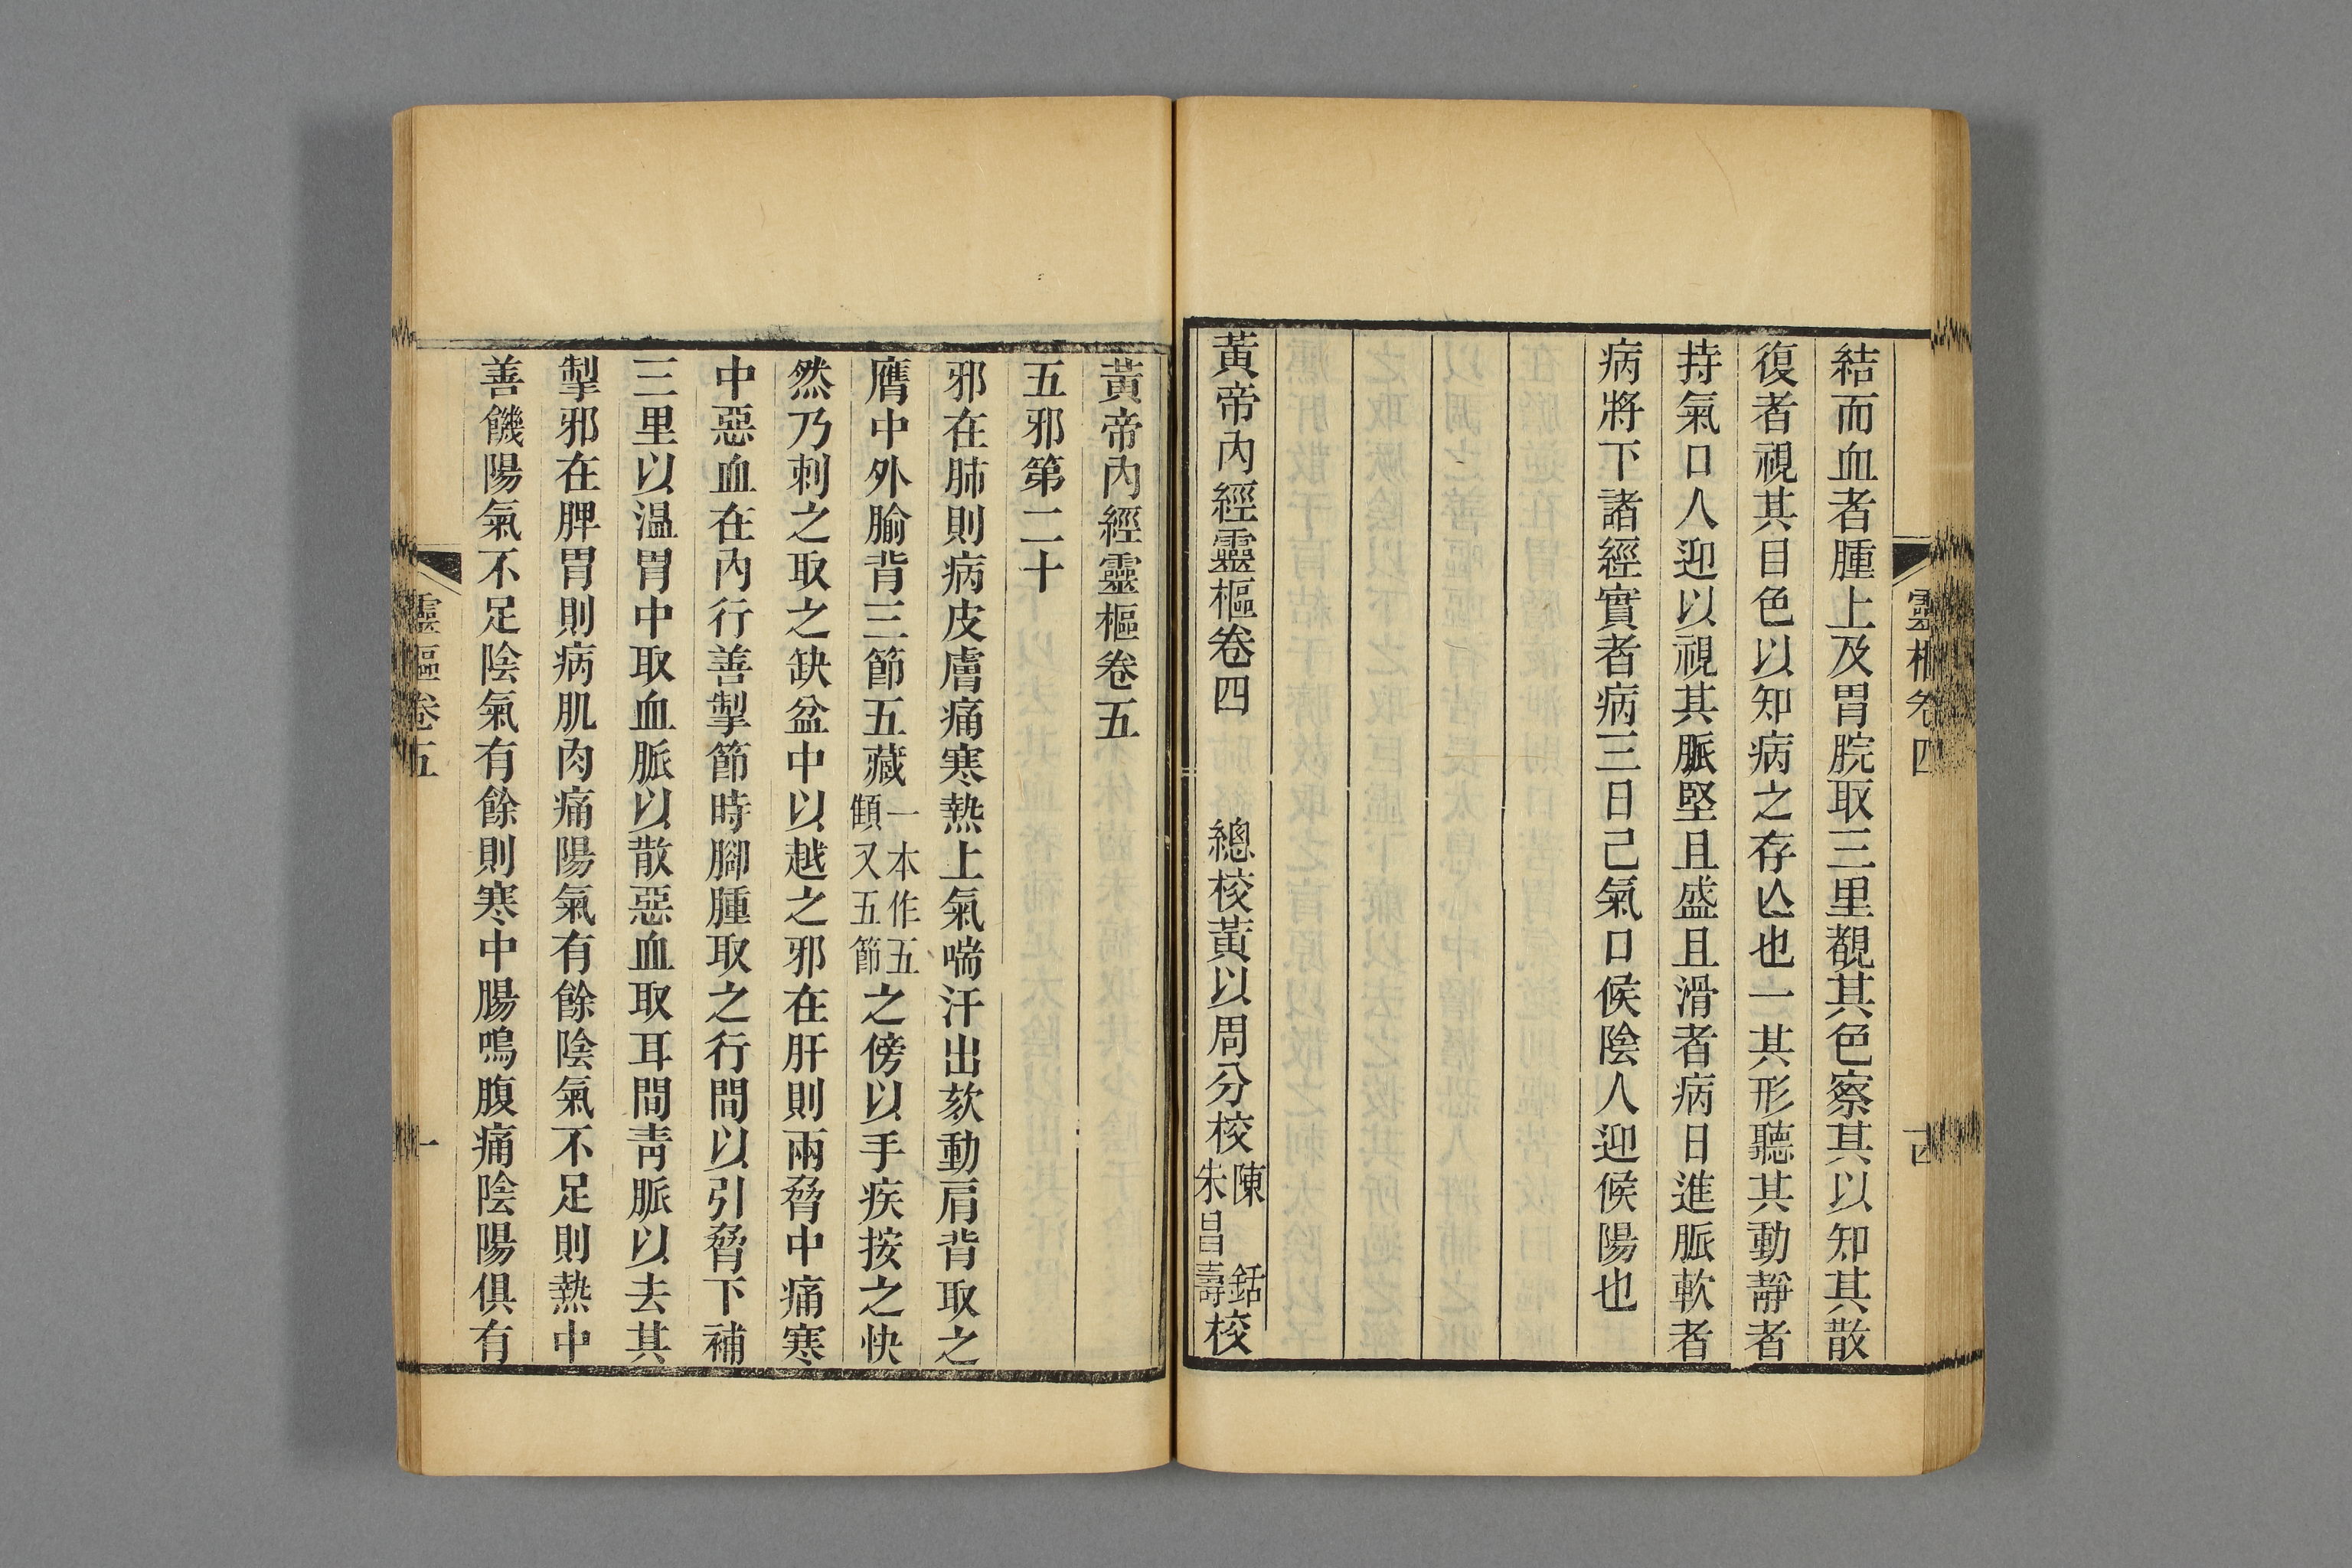 靈樞卷四
結而血者腫上及胃脘取三里覩其色察其以知其散
復者視其目色以知病之存亾也一其形聽其動靜者
持氣口人迎以視其脈堅且盛且滑者病日進脈軟者
病將下諸經實者病三日己氣口候陰人迎候陽也
黃帝內經靈樞卷四 總校黃以周分校陳鋕朱昌壽校
黃帝內經靈樞卷五
五邪第二十
邪在肺則病皮膚痛寒熱上氣喘汗出欬動肩背取之
膺中外腧背三節五藏一本作五顀又五節之傍以手疾按之快
然乃刺之取之缺盆中以越之邪在肝則兩脅中痛寒
中惡血在內行善掣節時腳腫取之行間以引脅下補
三里以温胃中取血脈以散惡血取耳間靑脈以去其
掣邪在脾胃則病肌肉痛陽氣有餘陰氣不足則熱中
善饑陽氣不足陰氣有餘則寒中腸鳴腹痛陰陽俱有
靈樞卷五
一